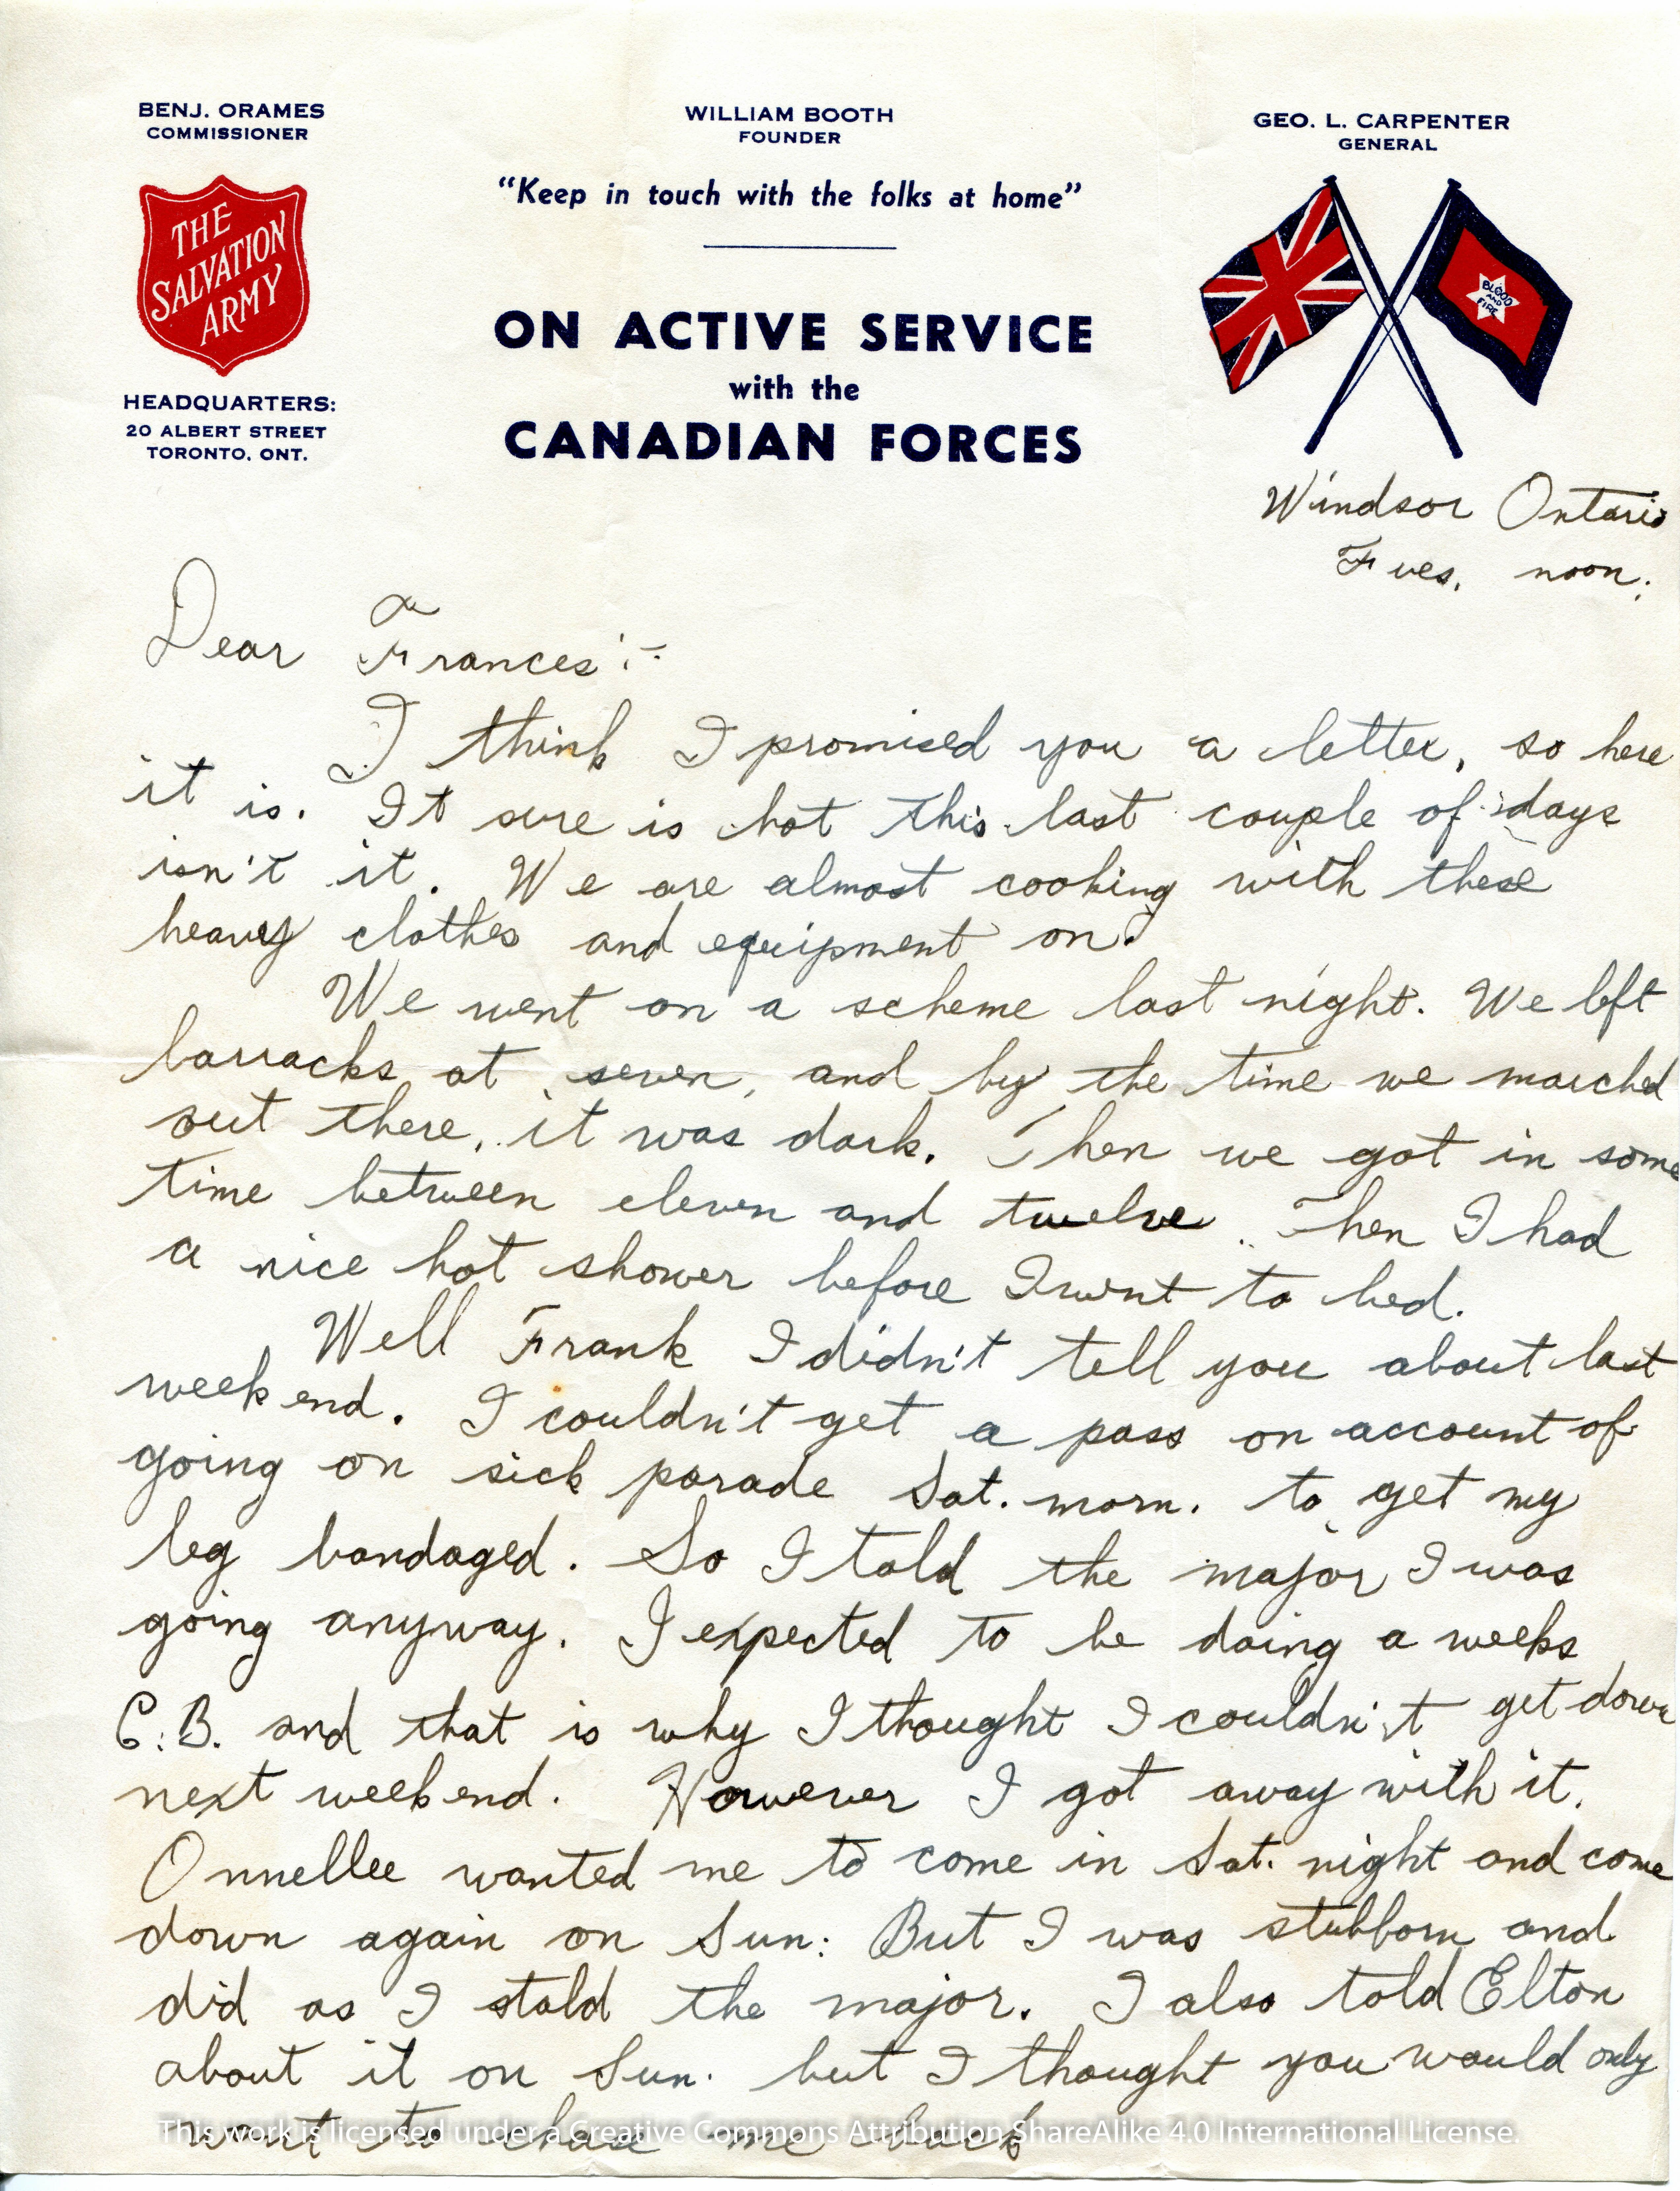 BENJ. ORAMES
COMMISSIONER
THE
SALVATION
ARMY
HEADQUARTERS:
20 ALBERT STREET
TORONTO, ONT.
WILLIAM BOOTH
FOUNDER
"Keep in touch with the folks at home"
ON ACTIVE SERVICE
with the
CANADIAN FORCES
GEO. L. CARPENTER
GENERAL
BLOOD
AND
FIRE
Windsor Ontario
Tues. noon.
Dear Frances:-
I think I promised you a letter, so here
it is. It sure is hot this last couple of days
isn't it. We are almost cooking with these
heavy clothes and equipment on.
We went on a scheme last night. We left
barracks at seven, and by the time we marched
out there, it was dark. Then we got in some
time between eleven and twelve. Then I had
a nice hot shower before I went to bed.
Well Frank I didn't tell you about last
week end. I couldn't get a pass on account of
going on sick parade Sat. morn. to get my
leg bandaged. So I told the major I was
going anyway. I expected to be doing a weeks
C.B. and that is why I thought I couldn't get down
next week end. However I got away with it.
Onnellee wanted me to come in Sat. night and come
down again on Sun: But I was stubborn and
did as I stold the major. I also told Elton
about it on Sun. but I thought you would only
want to chase me back
This work is licensed under a Creative Commons Attribution ShareAlike 4.0 International License.